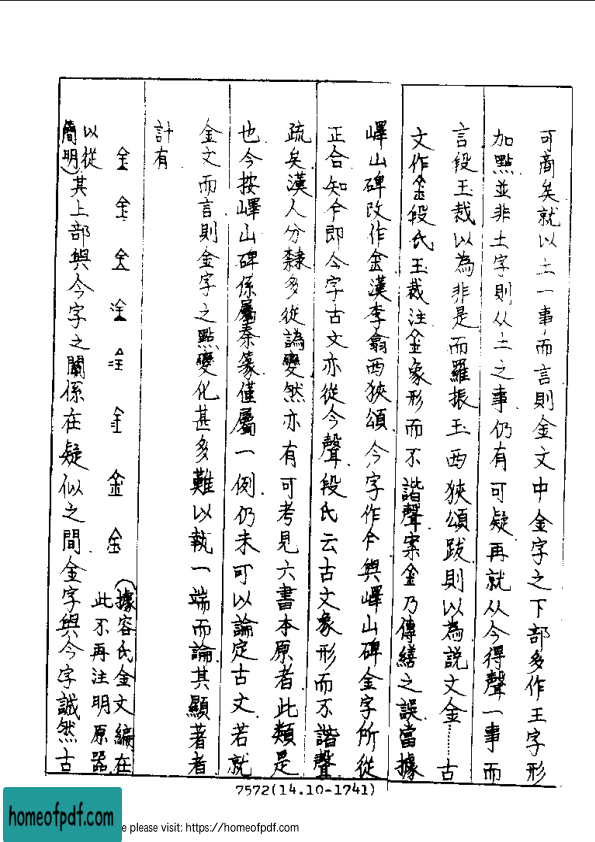 可商矣就以土一事而言則金文中金字之下部多作王字形
加點並非土字則从土之事仍有可疑再就从今得聲一事而
言段玉裁以為非是而羅振玉西狹頌跋則以為説文金……古
文作金段氏玉裁注金象形而不諧聲案金乃傳繕之誤當據
嶧山碑改作金漢李翕西狹頌今字作今與嶧山碑金字所從
正合知今即今字古文亦從今聲段氏云古文象形而不諧聲
疏矣漢人分隸多從譌變然亦有可考見六書本原者此類是
也今按嶧山碑係屬秦篆僅屬一例仍未可以論定古文若就
金文而言則金字之點變化甚多難以執一端而論其顯著者
計有
金 金 金 金 金 金 金 金(據容氏金文編在此不再注明原器
以從簡明)其上部與今字之關係在疑似之間金字與今字誠然古
7572(14.10-1741)
homeofpdf.com
e please visit: https://homeofpdf.com